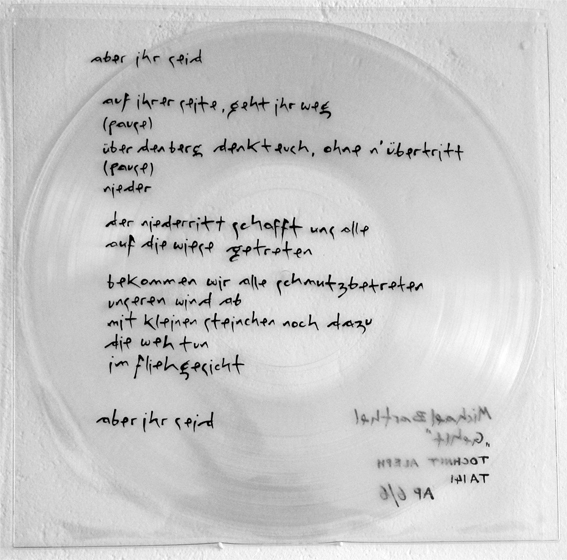 aber ihr seid
auf ihrer seite, geht ihr weg
(pause)
über den berg denkt euch, ohne n'übertritt
(pause)
nieder
der niederritt schafft uns alle
auf die wiese getreten
bekommen wir alle schmutzbetreten
unseren wind ab
mit kleinen steinchen noch dazu
die weh tun
im fliehgesicht
aber ihr seid
Michael Barthel
"Gehlt"
TOCHNIT ALEPH
TA141
AP 6/6